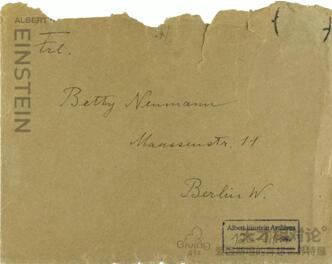 ALBERT
EINSTEIN
Frl.
Betty Neumann
Maassenstr. 11
Berlin W.
Albert Einstein Archives